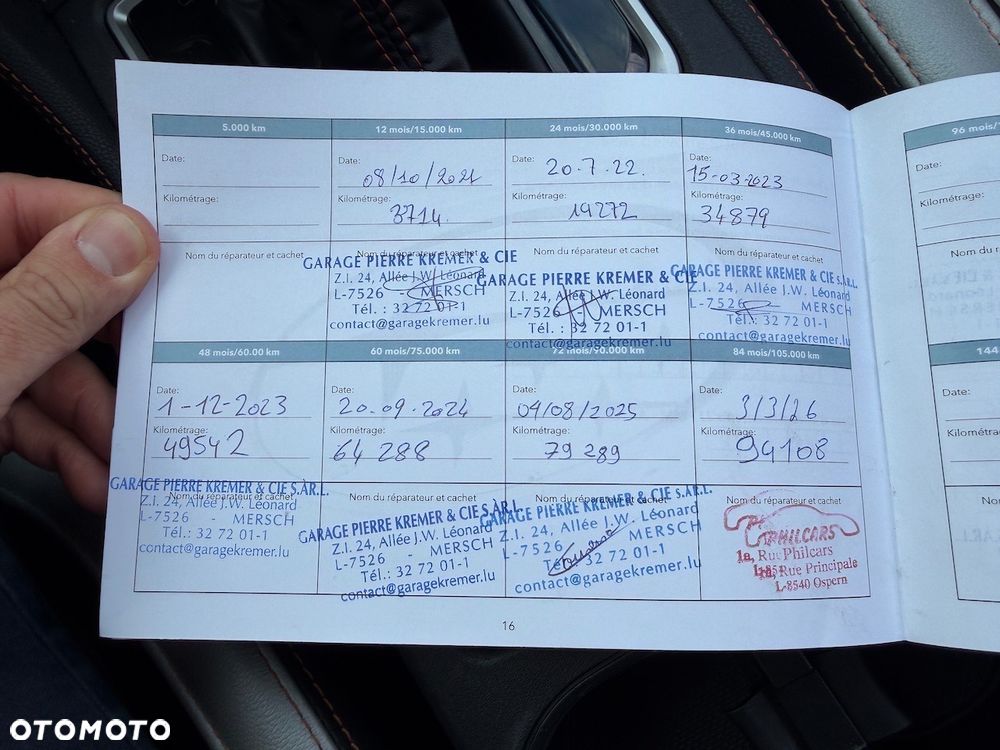 5.000 km
Date:
Kilométrage:
Nom du réparateur et cachet
12 mois/15.000 km
Date: 08/10/2021
Kilométrage: 3714
Nom du réparateur et cachet
GARAGE PIERRE KREMER & CIE
Z.I. 24, Allée J.W. Léonard
L-7526 - MERSCH
Tél. : 32 72 01-1
contact@garagekremer.lu
24 mois/30.000 km
Date: 20.7.22.
Kilométrage: 19272
Nom du réparateur et cachet
GARAGE PIERRE KREMER & CIE
Z.I. 24, Allée J.W. Léonard
L-7526 - MERSCH
Tél.: 32 72 01-1
contact@garagekremer.lu
36 mois/45.000 km
Date: 15-03-2023
Kilométrage: 34879
Nom du réparateur et cachet
GARAGE PIERRE KREMER & CIE S.àR.L.
Z.I. 24, Allée J.W. Léonard
L-7526 - MERSCH
Tél.: 32 72 01-1
contact@garagekremer.lu
48 mois/60.00 km
Date: 1-12-2023
Kilométrage: 49542
Nom du réparateur et cachet
GARAGE PIERRE KREMER & CIE S.ÀR.L.
Z.I. 24, Allée J.W. Léonard
L-7526 - MERSCH
Tél.: 32 72 01-1
contact@garagekremer.lu
60 mois/75.000 km
Date: 20.09.2024
Kilométrage: 64 288
Nom du réparateur et cachet
GARAGE PIERRE KREMER & CIE S.ÀR.L.
Z.I. 24, Allée J.W. Léonard
L-7526 - MERSCH
Tél.: 32 72 01-1
contact@garagekremer.lu
72 mois/90.000 km
Date: 04/08/2025
Kilométrage: 79 289
Nom du réparateur et cachet
GARAGE PIERRE KREMER & CIE S.ÀR.L.
Z.I. 24, Allée J.W. Léonard
L-7526 - MERSCH
Tél.: 32 72 01-1
contact@garagekremer.lu
84 mois/105.000 km
Date: 3/3/26
Kilométrage: 94108
Nom du réparateur et cachet
PHILCARS
1a, Rue Principale
L-8540 Ospern
16
96 mois/
Date:
Kilométrage:
Nom du
144
Date:
Kilométra
Nom
OTOMOTO